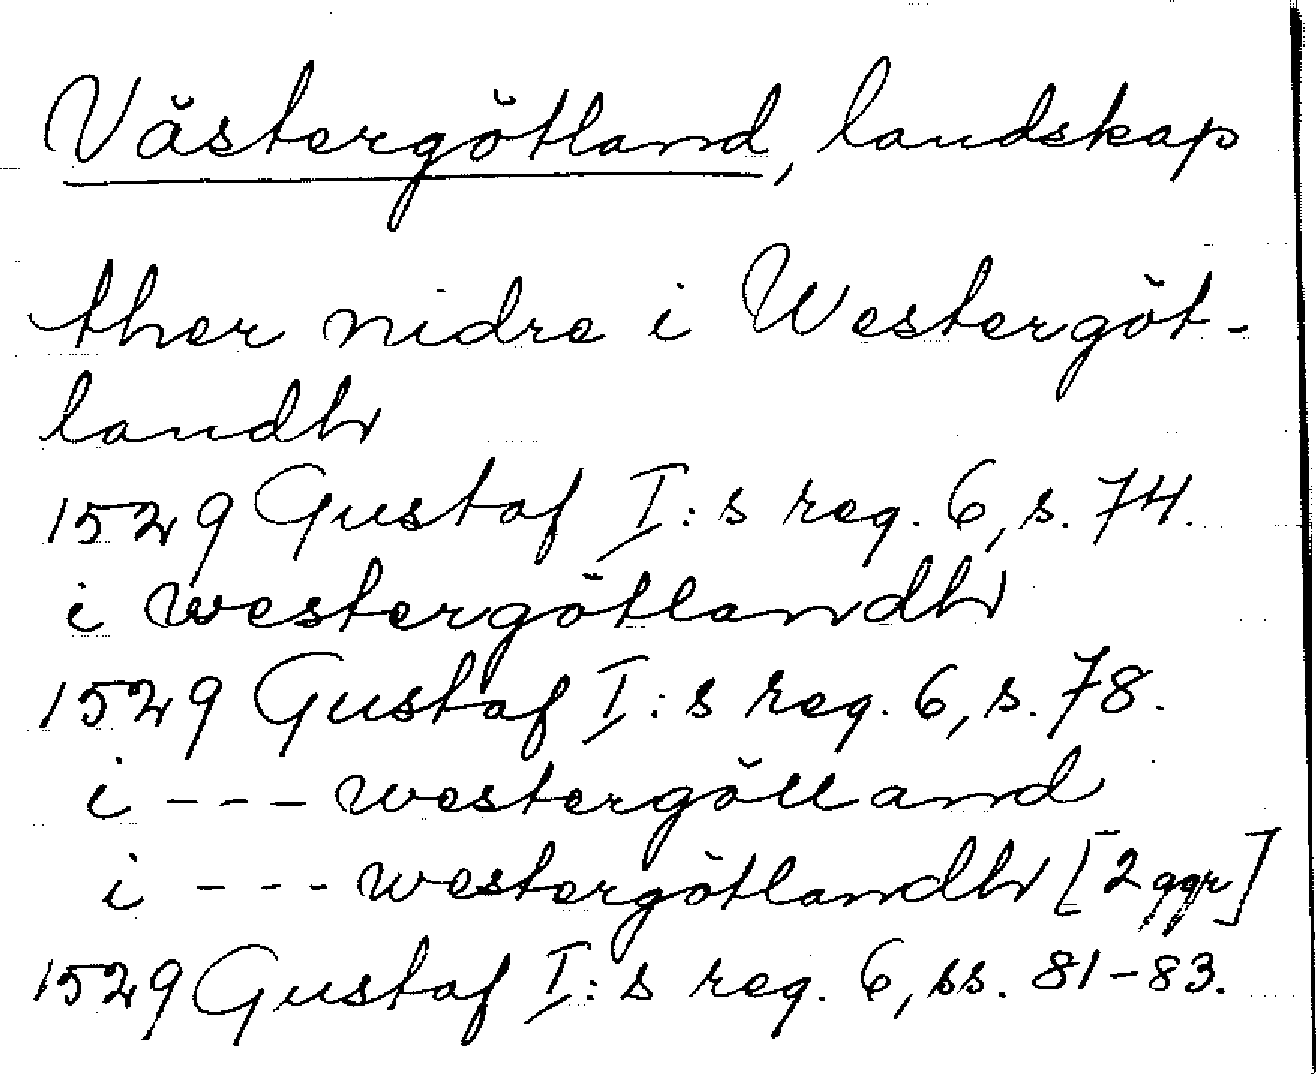 Västergötland, landskap
ther nidre i Westergöt-
landh
1529 Gustaf I:s reg. 6, s. 74.
i westergötlandh
1529 Gustaf I:s reg. 6, s. 78.
i --- westergötland
i --- westergötlandh [2 ggr]
1529 Gustaf I:s reg. 6, ss. 81-83.